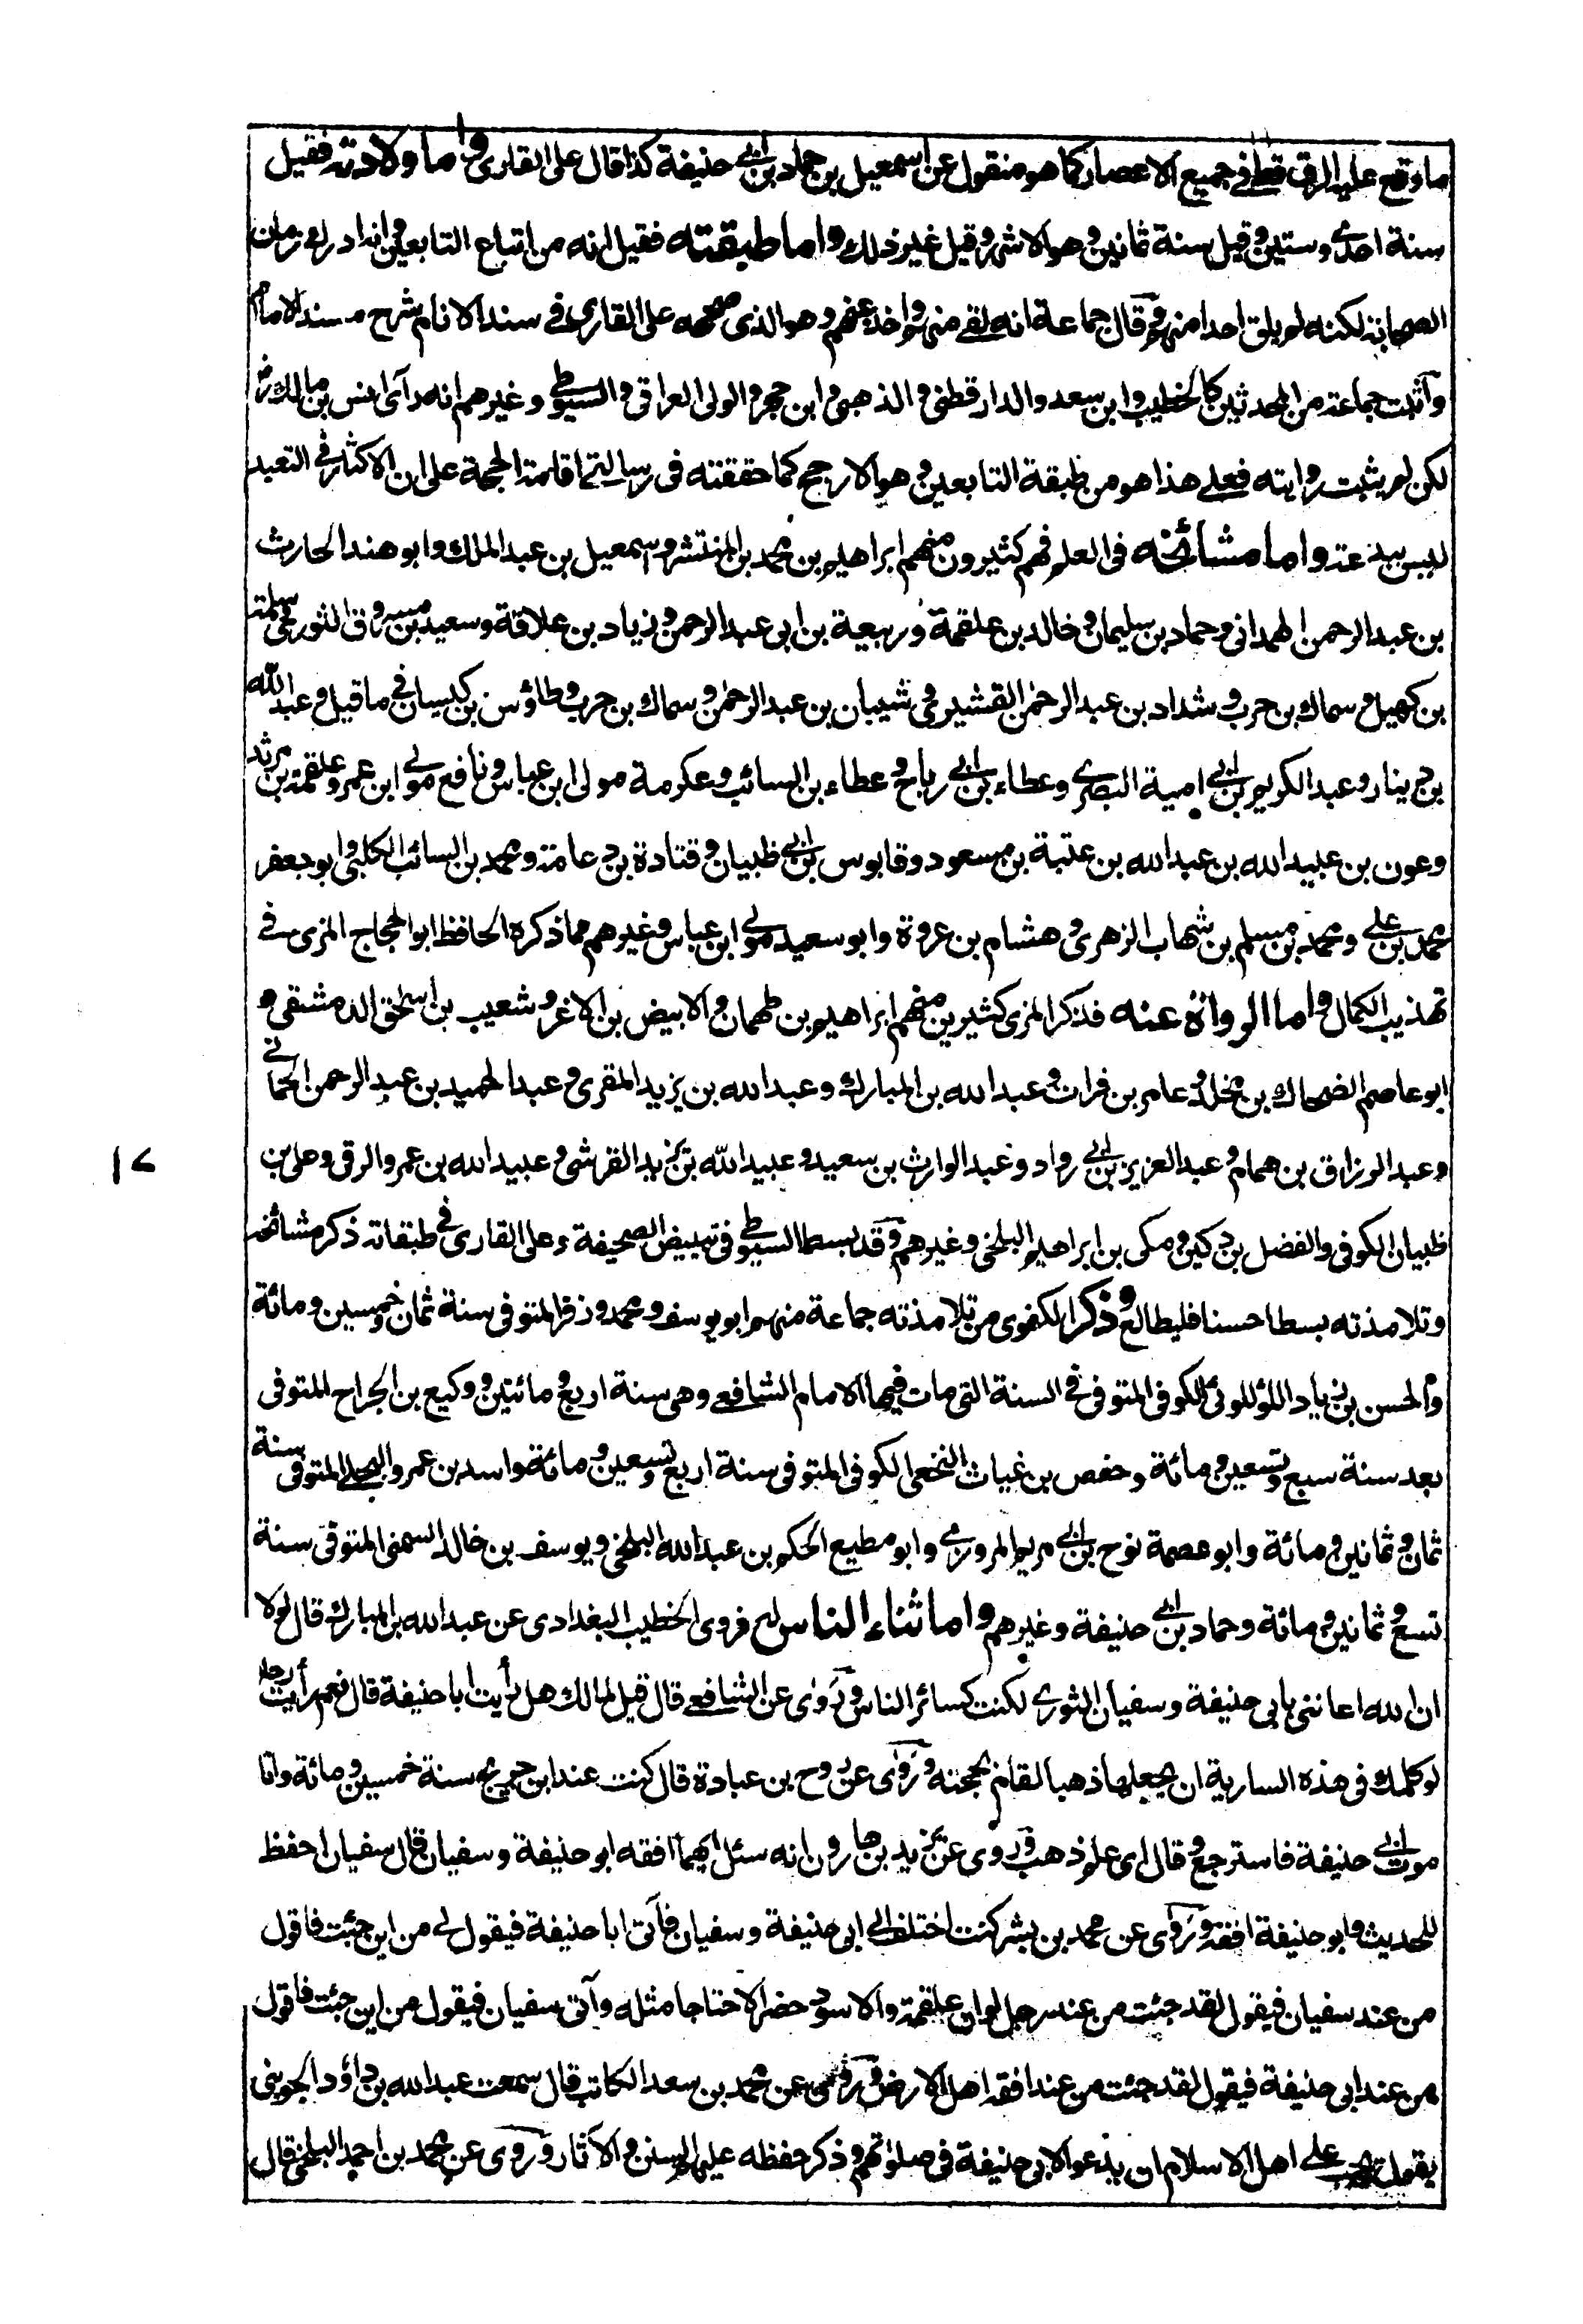 ما وقع عليه الرق قط في جميع الاعصار كما هو منقول عن اسمعيل بن حماد بن ابي حنيفة كذا قال علي القاري واما ولادته فقيل
سنة احدى وستين وقيل سنة ثمانين وهو الاشهر وقيل غير ذلك واما طبقته فقيل انه من اتباع التابعين وانه ادرك زمان
الصحابة لكنه لم يلق احدا منهم وقال جماعة انه لقى منهم واخذ عنهم وهو الذي صححه علي القاري في سند الانام شرح مسند الامام
وأثبت جماعة من المحدثين كالخطيب وابن سعد والدارقطني والذهبي وابن حجر والولي العراقي والسيوطي وغيرهم انه رآى انس بن مالك رض
لكن لم يثبت روايته فعلى هذا هو من طبقة التابعين وهو الارجح كما حققته في رسالتي اقامة الحجة على ان الاكثار في التعبد
ليس ببدعة واما مشائخه في العلم فهم كثيرون منهم ابراهيم بن محمد بن المنتشر واسمعيل بن عبد الملك وابو هند الحارث
بن عبد الرحمن الهمداني وحماد بن سليمان وخالد بن علقمة وربيعة بن ابي عبد الرحمن وزياد بن علاقة وسعيد بن مسروق الثوري وسلمة
بن كهيل وسماك بن حرب وشداد بن عبد الرحمن القشيري وشيبان بن عبد الرحمن وسماك بن حرب وطاؤس بن كيسان في ما قيل وعبد الله
بن دينار وعبد الكريم بن ابي امية البصري وعطاء بن ابي رباح وعطاء بن السائب وعكرمة مولى ابن عباس ونافع مولى ابن عمر وعلقمة بن مرثد
وعون بن عبيد الله بن عبد الله بن عتبة بن مسعود وقابوس بن ابي ظبيان وقتادة بن دعامة ومحمد بن السائب الكلبي وابو جعفر
محمد بن علي ومحمد بن مسلم بن شهاب الزهري وهشام بن عروة وابو سعيد مولى ابن عباس وغيرهم مما ذكره الحافظ ابو الحجاج المزي في
تهذيب الكمال واما الرواة عنه فذكر المزي كثيرين منهم ابراهيم بن طهمان والابيض بن الاغر وشعيب بن اسحق الدمشقي و
ابو عاصم الضحاك بن مخلد وعامر بن فرات وعبد الله بن المبارك وعبد الله بن يزيد المقري وعبد الحميد بن عبد الرحمن الحماني
وعبد الرزاق بن همام وعبد العزيز بن ابي رواد وعبد الوارث بن سعيد وعبيد الله بن يزيد القرشي وعبيد الله بن عمرو الرقي وعلي بن
١٧
ظبيان الكوفي والفضل بن دكين ومكي بن ابراهيم البلخي وغيرهم وقد بسط السيوطي في تبييض الصحيفة وعلي القاري في طبقاته ذكر مشائخه
وتلامذته بسطا حسنا فليطالع وذكر الكفوي من تلامذته جماعة منهم ابو يوسف ومحمد وزفر المتوفى سنة ثمان وخمسين ومائة
والحسن بن زياد اللؤلوئي الكوفي المتوفى في السنة التي مات فيها الامام الشافعي وهي سنة اربع ومائتين ووكيع بن الجراح المتوفى
بعد سنة سبع وتسعين ومائة وحفص بن غياث النخعي الكوفي المتوفى سنة اربع وتسعين ومائة واسد بن عمرو البجلي المتوفى سنة
ثمان وثمانين ومائة وابو عصمة نوح بن ابي مريم المروزي وابو مطيع الحكم بن عبد الله البلخي ويوسف بن خالد السمتي المتوفى سنة
تسع وثمانين ومائة وحماد بن ابي حنيفة وغيرهم واما ثناء الناس له فروى الخطيب البغدادي عن عبد الله بن المبارك قال لولا
ان الله اعانني بابي حنيفة وسفيان الثوري لكنت كسائر الناس وروى عن الشافعي قال قيل لمالك هل رأيت ابا حنيفة قال نعم رأيت رجلا
لو كلمك في هذه السارية ان يجعلها ذهبا لقام بحجته وروى عن روح بن عبادة قال كنت عند ابن جريج سنة خمسين ومائة واتا
موت ابي حنيفة فاسترجع وقال اي علم ذهب وروى عن يزيد بن هارون انه سئل ايهما افقه ابو حنيفة وسفيان قال سفيان احفظ
للحديث وابو حنيفة افقه وروى عن محمد بن بشر كنت اختلف الى ابي حنيفة وسفيان فآتى ابا حنيفة فيقول لي من اين جئت فاقول
من عند سفيان فيقول لقد جئت من عند رجل لو ان علقمة والاسود حضرا لاحتاجا مثله وآتي سفيان فيقول من اين جئت فاقول
من عند ابي حنيفة فيقول لقد جئت من عند افقه اهل الارض وروى عن محمد بن سعد الكاتب قال سمعت عبد الله بن داؤد الجويني
يقول يجب على اهل الاسلام ان يدعوا لابي حنيفة في صلوتهم وذكر حفظه عليهم السنن والآثار وروى عن محمد بن احمد البلخي قال